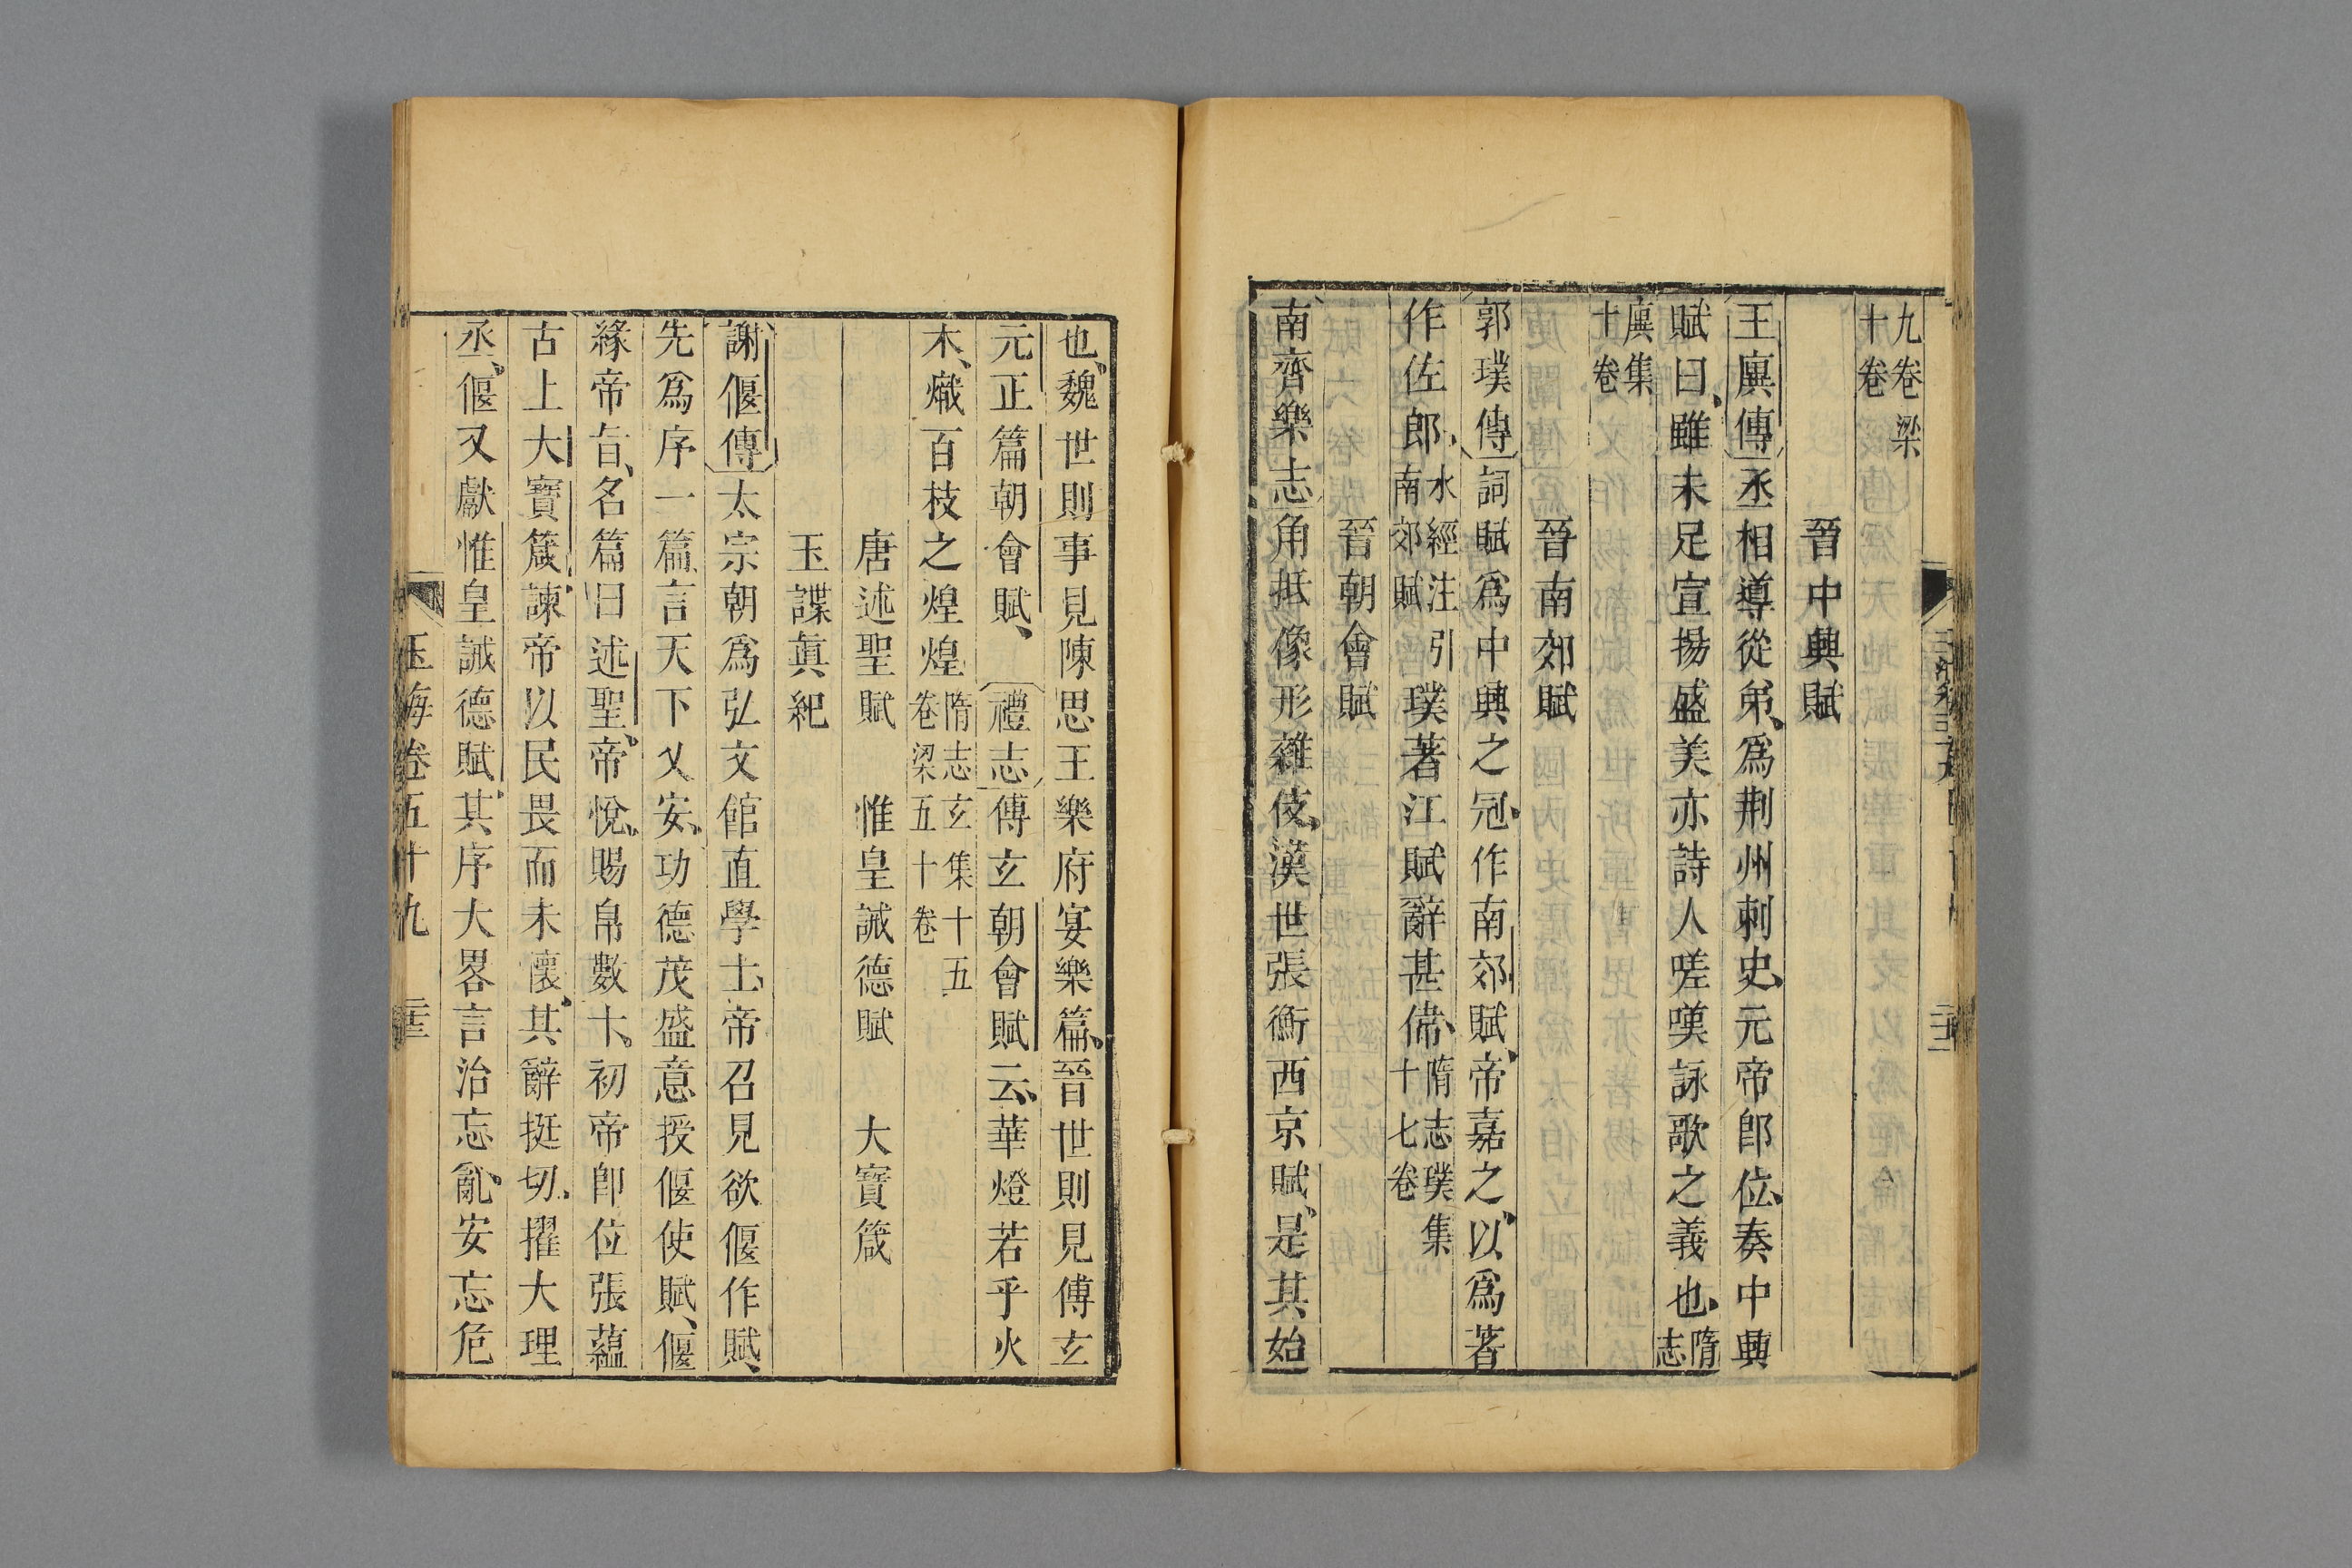 九卷梁
十卷
晉中興賦
王廙傳丞相導從弟爲荆州刺史元帝卽位奏中興
賦曰雖未足宣揚盛美亦詩人嗟嘆詠歌之義也隋志
廙集十卷
晉南郊賦
郭璞傳詞賦爲中興之冠作南郊賦帝嘉之以爲著
作佐郎水經注引南郊賦璞著江賦辭甚偹隋志璞集十七卷
晉朝會賦
南齊樂志角抵像形雜伎漢世張衡西京賦是其始
也魏世則事見陳思王樂府宴樂篇晉世則見傅玄
元正篇朝會賦禮志傅玄朝會賦云華燈若乎火
木熾百枝之煌煌隋志玄集十五卷梁五十卷
唐述聖賦 惟皇誡德賦 大寶箴
玉諜眞紀
謝偃傳太宗朝爲弘文館直學士帝召見欲偃作賦
先爲序一篇言天下乂安功德茂盛意授偃使賦偃
緣帝旨名篇曰述聖帝悅賜帛數十初帝卽位張蘊
古上大寶箴諫帝以民畏而未懷其辭挺切擢大理
丞偃又獻惟皇誡德賦其序大畧言治忘亂安忘危
玉海卷五十九 二十三